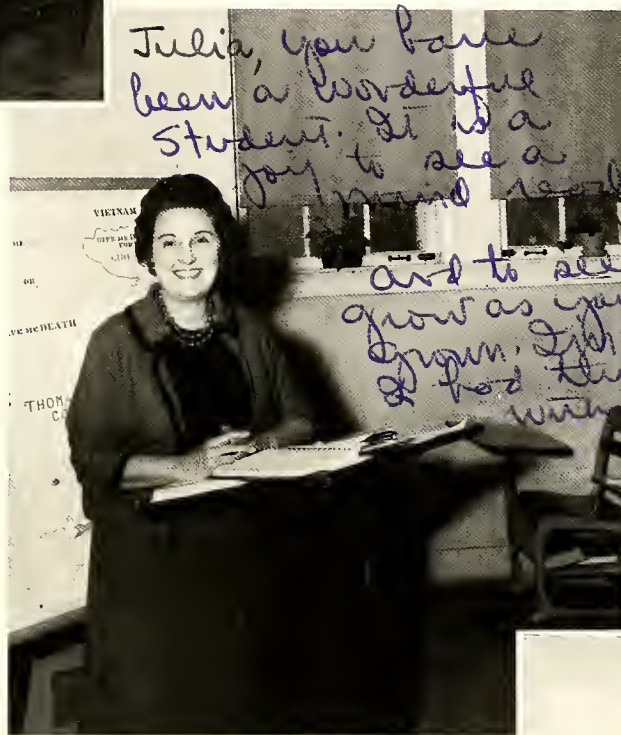 Julia, you have
been a wonderful
Student. It is a
joy to see a
mind
and to see
grow as you
grown.
I had
VIETNAM
GIVE ME
OR
VE ME DEATH
THOM